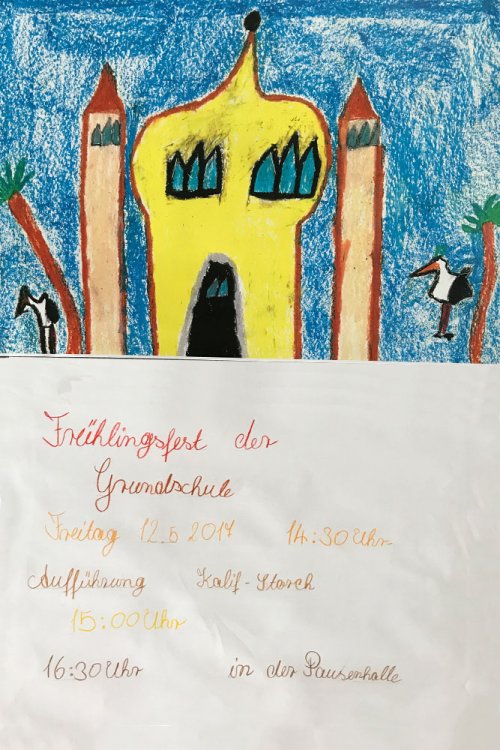 Frühlingsfest der
Grundschule
Freitag 12.5 2017 14:30 Uhr
Aufführung Kalif-Storch
15:00 Uhr
16:30 Uhr in der Pausenhalle